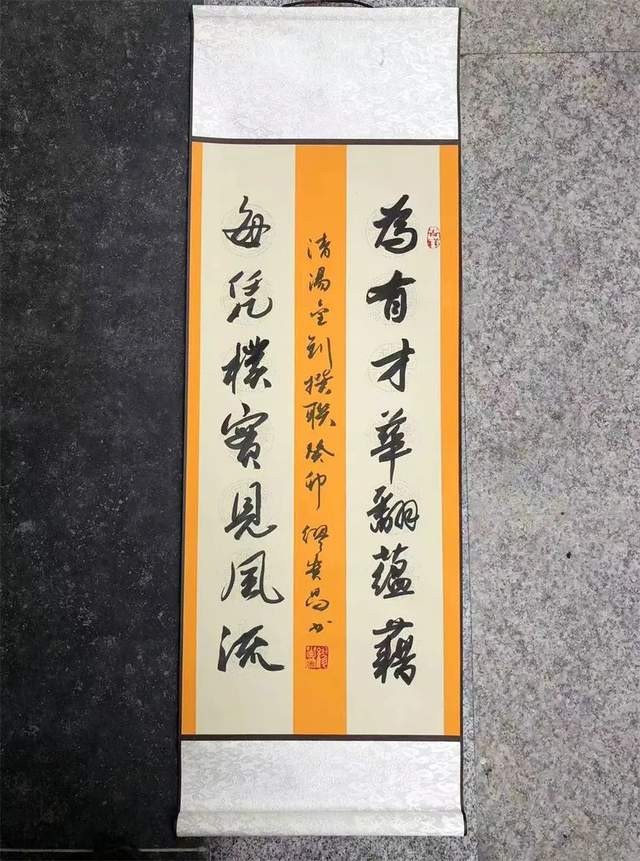 為有才華翻蘊藉
清湯金釗撰联癸卯繆貴昌书
每凭樸實見風流